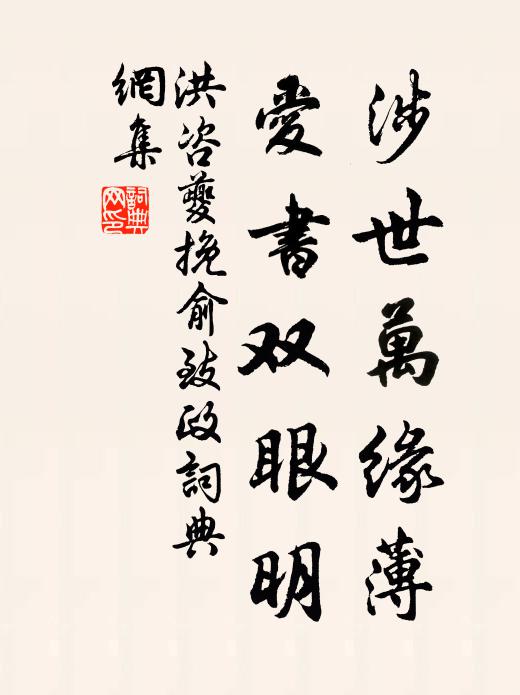 涉世萬緣薄
愛書双眼明
洪咨夔挽俞致政詞典
網集
詞典
网印